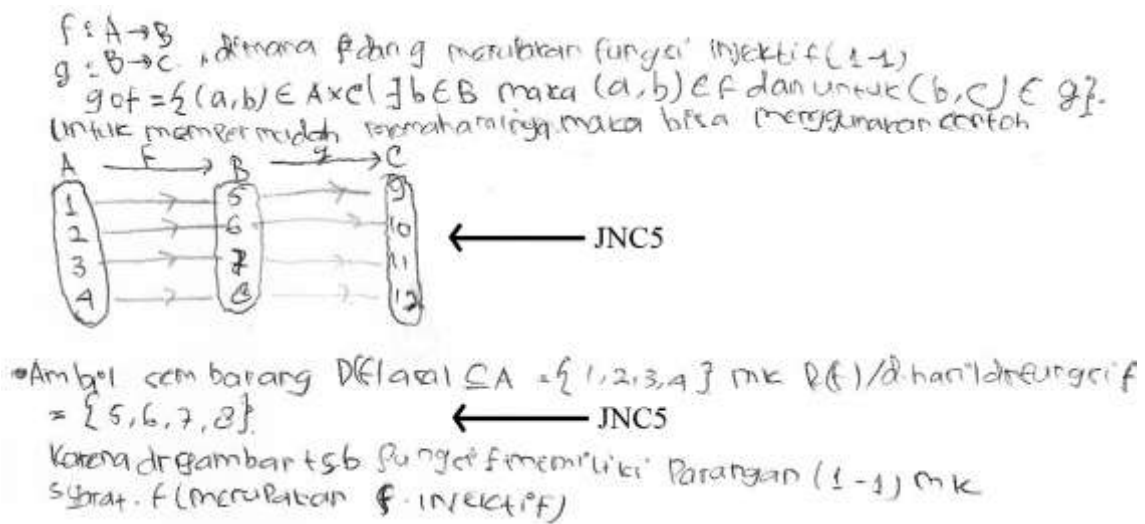 f : A → B
g : B → C , dimana f dan g merupakan fungsi injektif (1-1)
g o f = { (a,b) ∈ A×C | ∃ b ∈ B maka (a,b) ∈ f dan untuk (b,c) ∈ g}.
Untuk mempermudah memahaminya maka bisa menggunakan contoh
A f B g C
1 5 9
2 6 10
JNC5
3 7 11
4 8 12
Ambil sembarang D(f) asal ⊆ A = {1,2,3,4} mk R(f)/d.hasil dr fungsi f
= {5,6,7,8}.
JNC5
Karena dr gambar tsb fungsi f memiliki Pasangan (1-1) mk
syarat. f (merupakan f. injektif)